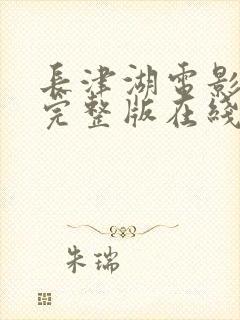 長津湖電影
完整版在綫
朱瑞